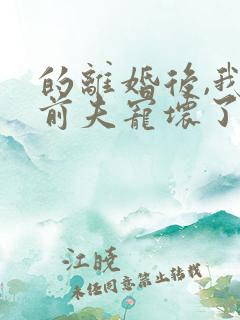 的離婚後,我
前夫寵壞了
江曉
未經同意禁止轉載